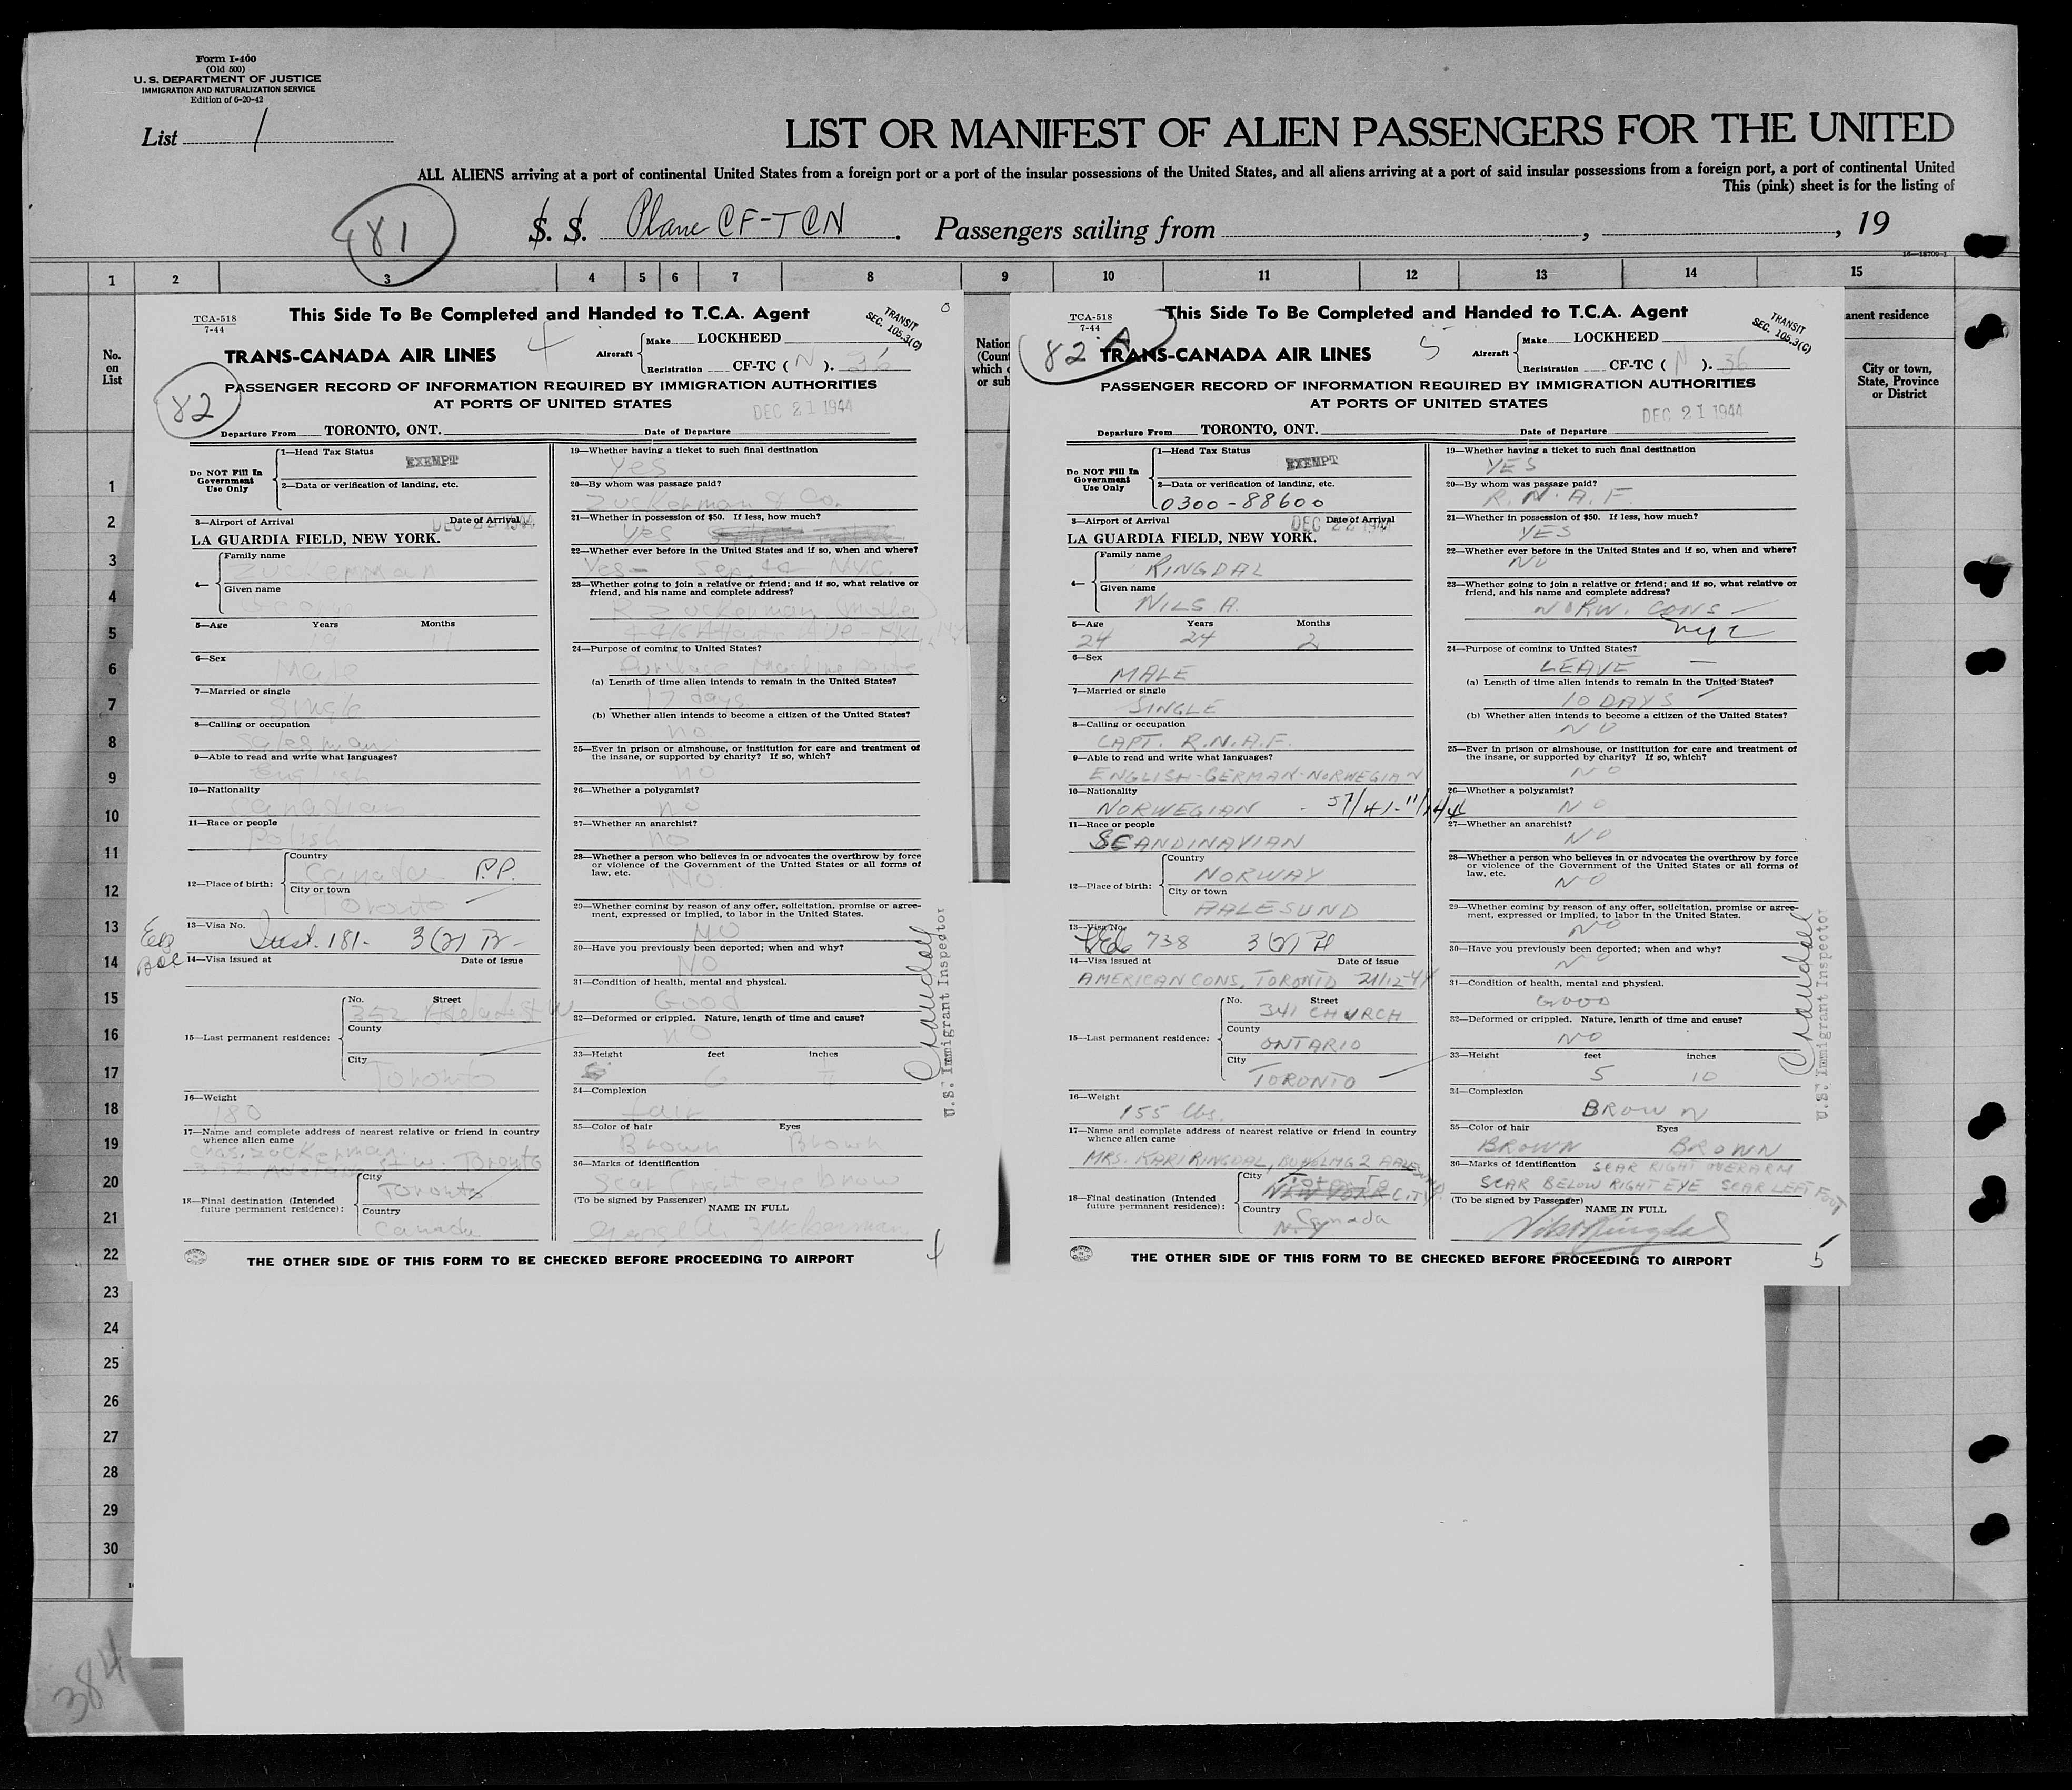 Form I-400
(Old 500)
U. S. DEPARTMENT OF JUSTICE
IMMIGRATION AND NATURALIZATION SERVICE
Edition of 6-20-42
List 1
LIST OR MANIFEST OF ALIEN PASSENGERS FOR THE UNITED
ALL ALIENS arriving at a port of continental United States from a foreign port or a port of the insular possessions of the United States, and all aliens arriving at a port of said insular possessions from a foreign port, a port of continental United
This (pink) sheet is for the listing of
81
S. S. Plane CF-TCN. Passengers sailing from , , 19
16—18700-1
1 2 3 4 5 6 7 8 9 10 11 12 13 14 15
No.
on
List
Nation
(Coun
which c
or sub
anent residence
City or town,
State, Province
or District
1
2
3
4
5
6
7
8
9
10
11
12
13
14
15
16
17
18
19
20
21
22
23
24
25
26
27
28
29
30
384
TCA-518
7-44
This Side To Be Completed and Handed to T.C.A. Agent
TRANSIT
SEC. 105.3(C)
4
TRANS-CANADA AIR LINES
Aircraft
Make LOCKHEED
Registration CF-TC ( N ). 36
82
PASSENGER RECORD OF INFORMATION REQUIRED BY IMMIGRATION AUTHORITIES
AT PORTS OF UNITED STATES
DEC 21 1944
Departure From TORONTO, ONT. Date of Departure
Do NOT Fill In
Government
Use Only
1—Head Tax Status
EXEMPT
2—Data or verification of landing, etc.
3—Airport of Arrival Date of Arrival
DEC 22 1944
LA GUARDIA FIELD, NEW YORK.
4—
Family name
Zuckerman
Given name
George
5—Age Years Months
11
6—Sex
Male
7—Married or single
Single
8—Calling or occupation
Salesman
9—Able to read and write what languages?
English
10—Nationality
Canadian
11—Race or people
Polish
12—Place of birth:
Country
Canada P.P.
City or town
Toronto
13—Visa No.
181- 3(2) B-
14—Visa issued at Date of issue
15—Last permanent residence:
No. Street
352 Adelaide St W
County
City
Toronto
16—Weight
180
17—Name and complete address of nearest relative or friend in country
whence alien came
Chas. Zuckerman
352 Adelaide St W. Toronto
18—Final destination (Intended
future permanent residence):
City
Toronto
Country
Canada
19—Whether having a ticket to such final destination
Yes
20—By whom was passage paid?
Zuckerman & Co.
21—Whether in possession of $50. If less, how much?
Yes
22—Whether ever before in the United States and if so, when and where?
Yes - Sep. 44 N.Y.C.
23—Whether going to join a relative or friend; and if so, what relative or
friend, and his name and complete address?
R Zuckerman (Mother)
24—Purpose of coming to United States?
Purchase Machine parts
(a) Length of time alien intends to remain in the United States?
17 days
(b) Whether alien intends to become a citizen of the United States?
No
25—Ever in prison or almshouse, or institution for care and treatment of
the insane, or supported by charity? If so, which?
No
26—Whether a polygamist?
No
27—Whether an anarchist?
No
28—Whether a person who believes in or advocates the overthrow by force
or violence of the Government of the United States or all forms of
law, etc.
No
29—Whether coming by reason of any offer, solicitation, promise or agree-
ment, expressed or implied, to labor in the United States.
No
30—Have you previously been deported; when and why?
No
31—Condition of health, mental and physical.
Good
32—Deformed or crippled. Nature, length of time and cause?
No
33—Height feet inches
6
34—Complexion
fair
35—Color of hair Eyes
Brown Brown
36—Marks of identification
Scar right eye brow
(To be signed by Passenger)
NAME IN FULL
George A. Zuckerman
Crandall
U.S. Immigrant Inspector
THE OTHER SIDE OF THIS FORM TO BE CHECKED BEFORE PROCEEDING TO AIRPORT
4
TCA-518
7-44
This Side To Be Completed and Handed to T.C.A. Agent
TRANSIT
SEC. 105.3(C)
82 A
5
TRANS-CANADA AIR LINES
Aircraft
Make LOCKHEED
Registration CF-TC ( N ). 36
PASSENGER RECORD OF INFORMATION REQUIRED BY IMMIGRATION AUTHORITIES
AT PORTS OF UNITED STATES
DEC 21 1944
Departure From TORONTO, ONT. Date of Departure
Do NOT Fill In
Government
Use Only
1—Head Tax Status
EXEMPT
2—Data or verification of landing, etc.
0300-88600
3—Airport of Arrival Date of Arrival
DEC 22 1944
LA GUARDIA FIELD, NEW YORK.
4—
Family name
RINGDAL
Given name
NILS A.
5—Age Years Months
24 24 2
6—Sex
MALE
7—Married or single
SINGLE
8—Calling or occupation
CAPT. R.N.A.F.
9—Able to read and write what languages?
ENGLISH-GERMAN-NORWEGIAN
10—Nationality
NORWEGIAN
11—Race or people
SCANDINAVIAN
12—Place of birth:
Country
NORWAY
City or town
AALESUND
13—Visa No.
738 3(2)
14—Visa issued at Date of issue
AMERICAN CONS, TORONTO 21/12-44
15—Last permanent residence:
No. Street
341 CHURCH
County
ONTARIO
City
TORONTO
16—Weight
155 lbs.
17—Name and complete address of nearest relative or friend in country
whence alien came
MRS. KARI RINGDAL,
18—Final destination (Intended
future permanent residence):
City
Toronto
NEW YORK CITY
Country
Canada
N.Y
19—Whether having a ticket to such final destination
YES
20—By whom was passage paid?
R.N.A.F.
21—Whether in possession of $50. If less, how much?
YES
22—Whether ever before in the United States and if so, when and where?
NO
23—Whether going to join a relative or friend; and if so, what relative or
friend, and his name and complete address?
NORW. CONS -
nyc
24—Purpose of coming to United States?
LEAVE -
(a) Length of time alien intends to remain in the United States?
10 DAYS
(b) Whether alien intends to become a citizen of the United States?
NO
25—Ever in prison or almshouse, or institution for care and treatment of
the insane, or supported by charity? If so, which?
NO
26—Whether a polygamist?
NO
27—Whether an anarchist?
NO
28—Whether a person who believes in or advocates the overthrow by force
or violence of the Government of the United States or all forms of
law, etc.
NO
29—Whether coming by reason of any offer, solicitation, promise or agree-
ment, expressed or implied, to labor in the United States.
NO
30—Have you previously been deported; when and why?
NO
31—Condition of health, mental and physical.
GOOD
32—Deformed or crippled. Nature, length of time and cause?
NO
33—Height feet inches
5 10
34—Complexion
BROWN
35—Color of hair Eyes
BROWN BROWN
36—Marks of identification SCAR RIGHT OVERARM
SCAR BELOW RIGHT EYE SCAR LEFT FOOT
(To be signed by Passenger)
NAME IN FULL
Nils A Ringdal
Crandall
U.S. Immigrant Inspector
THE OTHER SIDE OF THIS FORM TO BE CHECKED BEFORE PROCEEDING TO AIRPORT
5